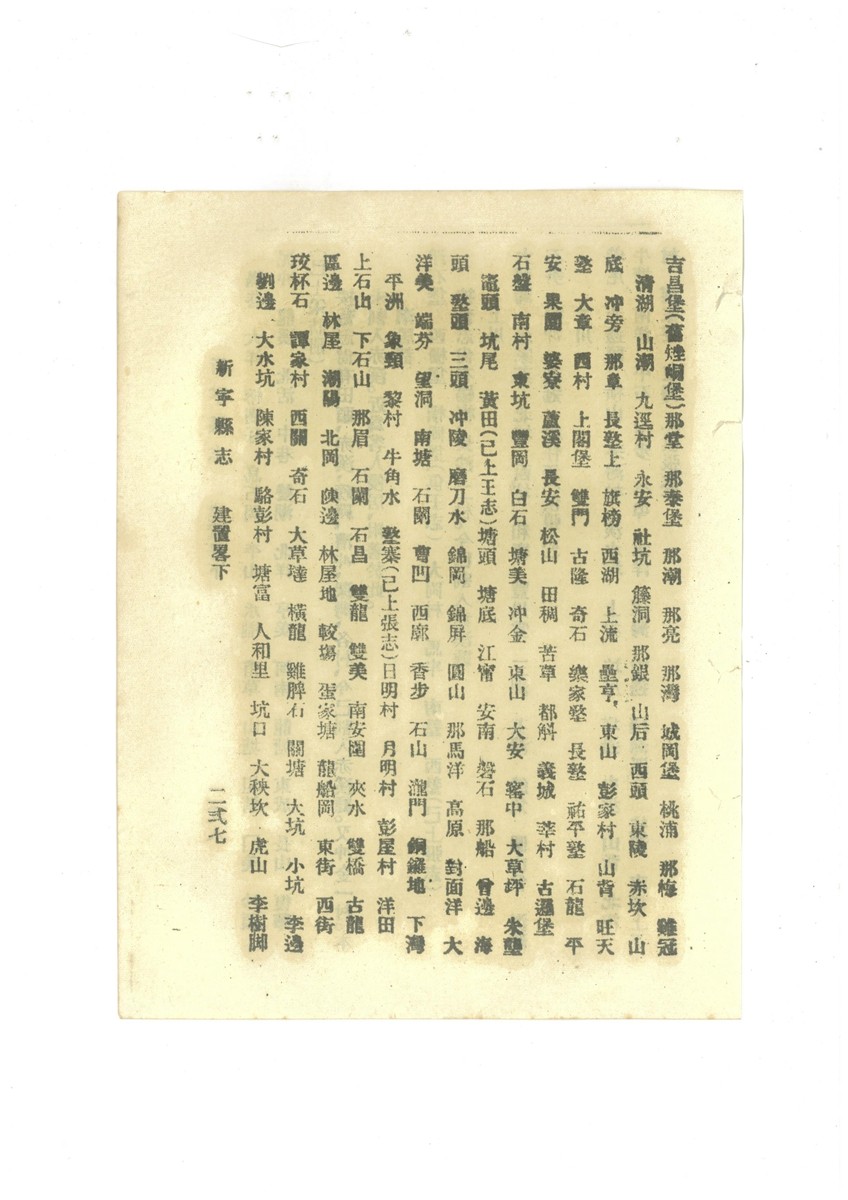 吉昌堡(舊矬峒堡)那堂 那泰堡 那潮 那亮 那灣 城岡堡 桃浦 那梅 雞冠
清湖 山潮 九逕村 永安 社坑 籐洞 那銀 山后 西頭 東陵 赤坎 山
底 冲旁 那章 長塾上 旗榜 西湖 上流 壘亨 東山 彭家村 山背 旺天
塾 大章 西村 上閣堡 雙門 古隆 奇石 欒家塾 長塾 祐平塾 石龍 平
安 果園 婆寮 蘆溪 長安 松山 田稠 苦草 都斛 義城 莘村 古邏堡
石盤 南村 東坑 豐岡 白石 塘美 冲金 東山 大安 窰中 大草坪 朱壟
龍頭 坑尾 黃田(已上王志)塘頭 塘底 江甯 安南 磐石 那船 曾邊 海
頭 塾頭 三頭 冲陵 磨刀水 錦岡 錦屏 圓山 那馬洋 高原 對面洋 大
洋美 端芬 望洞 南塘 石閣 曹凹 西廓 香步 石山 瀧門 銅鑼地 下灣
平洲 象頸 黎村 牛角水 塾寨(已上張志)日明村 月明村 彭屋村 洋田
上石山 下石山 那眉 石閣 石昌 雙龍 雙美 南安園 夾水 雙橋 古龍
區邊 林屋 潮陽 北岡 陳邊 林屋地 較塲 蛋家塘 龍船岡 東街 西街
珓杯石 譚家村 西關 奇石 大草墶 橫龍 雞脾石 關塘 大坑 小坑 李邊
劉邊 大水坑 陳家村 駱彭村 塘富 人和里 坑口 大秧坎 虎山 李樹脚
新寧縣志 建置畧下 二弍七